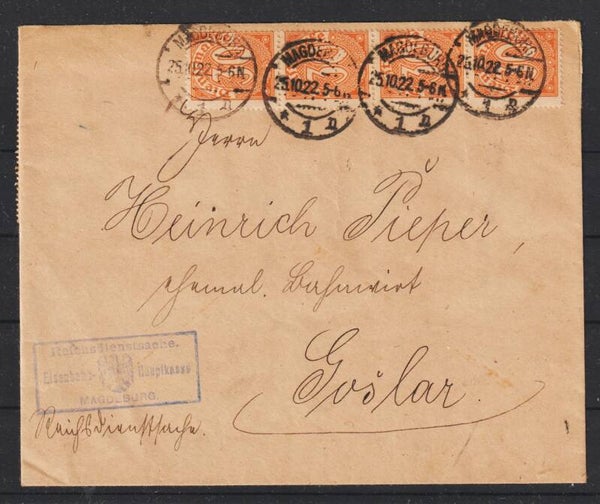 MAGDEBURG
25.10.22.5-6N.
* 1 n
MAGDEBURG
25.10.22.5-6N.
* 1 n
MAGDEBURG
25.10.22.5-6N.
* 1 n
MAGDEBURG
25.10.22.5-6N.
* 1 n
Herrn
Heinrich Pieper,
ehemal. Bahnwirt
Goslar.
Reichsdienstsache.
Eisenbahn- Hauptkasse
MAGDEBURG.
Reichsdienstsache.